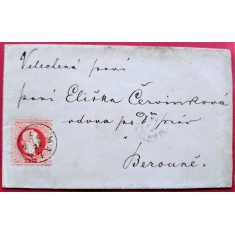 Velectěná paní
paní Eliška Červinková
vdova po Dru práv
v
Berouně.